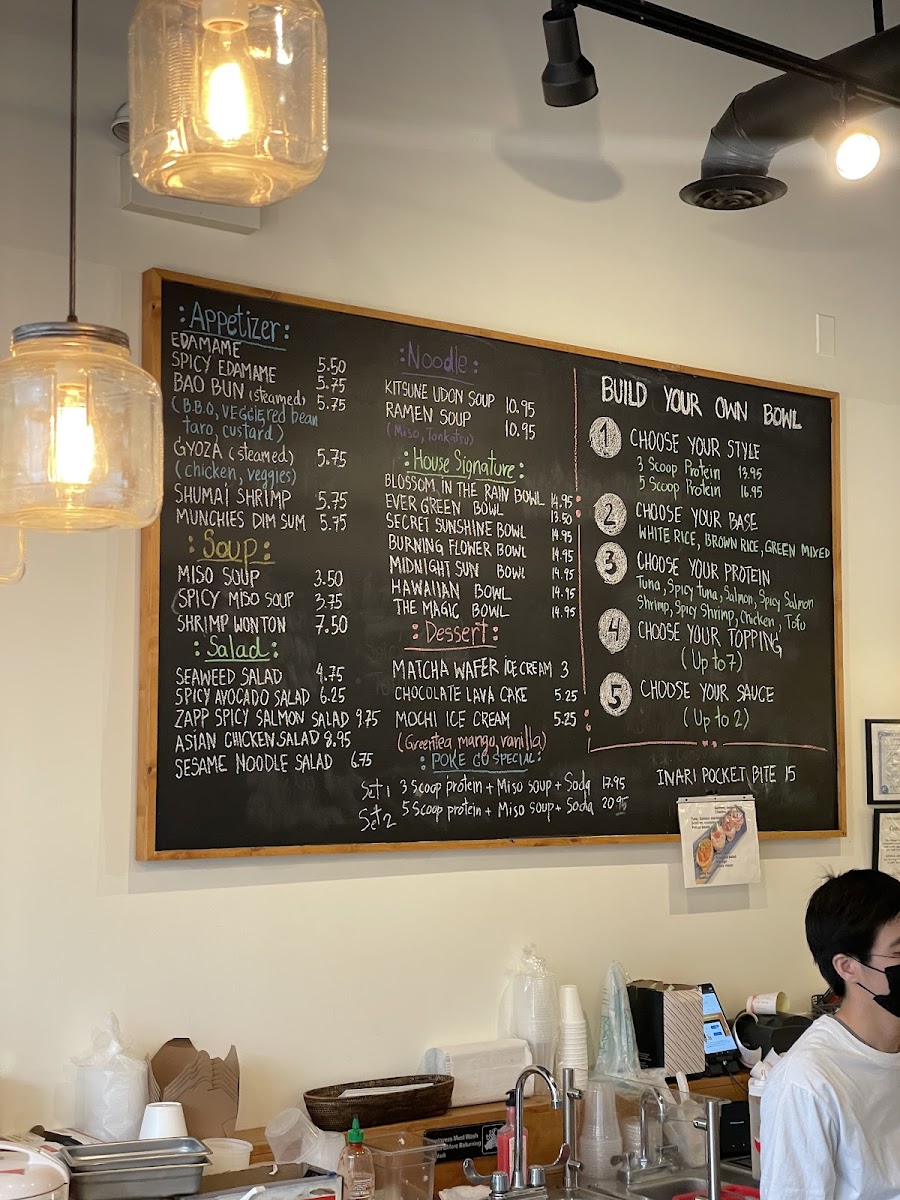 : Appetizer :
EDAMAME 5.50
SPICY EDAMAME 5.75
BAO BUN (steamed) 5.75
(B.B.Q, VEGGIE, red bean
taro, custard)
GYOZA (steamed) 5.75
(chicken, veggies)
SHUMAI SHRIMP 5.75
MUNCHIES DIM SUM 5.75
: Soup :
MISO SOUP 3.50
SPICY MISO SOUP 3.75
SHRIMP WONTON 7.50
: Salad :
SEAWEED SALAD 4.75
SPICY AVOCADO SALAD 6.25
ZAPP SPICY SALMON SALAD 9.75
ASIAN CHICKEN SALAD 8.95
SESAME NOODLE SALAD 6.75
: Noodle :
KITSUNE UDON SOUP 10.95
RAMEN SOUP 10.95
(Miso, Tonkatsu)
: House Signature :
BLOSSOM IN THE RAIN BOWL 14.95
EVER GREEN BOWL 13.50
SECRET SUNSHINE BOWL 14.95
BURNING FLOWER BOWL 14.95
MIDNIGHT SUN BOWL 14.95
HAWAIIAN BOWL 14.95
THE MAGIC BOWL 14.95
: Dessert :
MATCHA WAFER ICE CREAM 3
CHOCOLATE LAVA CAKE 5.25
MOCHI ICE CREAM 5.25
(Greentea, mango, vanilla)
: POKE GO SPECIAL :
Set 1 3 Scoop protein + Miso soup + Soda 17.95
Set 2 5 Scoop protein + Miso soup + Soda 20.95
BUILD YOUR OWN BOWL
1 CHOOSE YOUR STYLE
3 Scoop Protein 13.95
5 Scoop Protein 16.95
2 CHOOSE YOUR BASE
WHITE RICE, BROWN RICE, GREEN MIXED
3 CHOOSE YOUR PROTEIN
Tuna, Spicy Tuna, Salmon, Spicy Salmon
Shrimp, Spicy Shrimp, Chicken, Tofu
4 CHOOSE YOUR TOPPING
(Up to 7)
5 CHOOSE YOUR SAUCE
(Up to 2)
INARI POCKET BITE 15